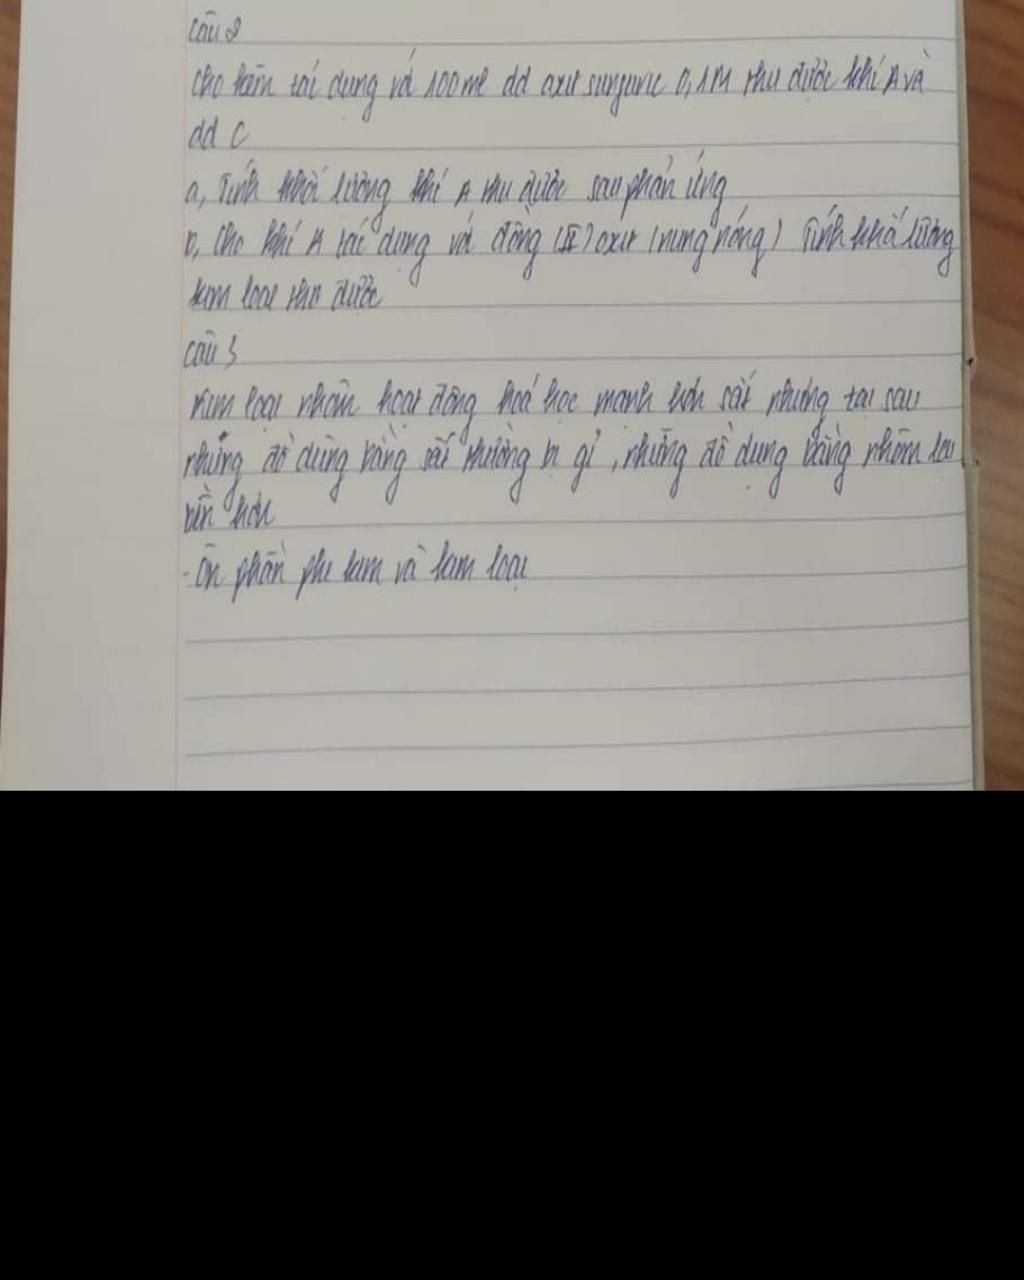 Câu 2
Cho kẽm tác dụng với 100ml dd axit sunfuric 0,1M thu được khí A và
dd C
a, Tính khối lượng khí A thu được sau phản ứng
b, Cho khí A tác dụng với đồng (II) oxit (nung nóng) Tính khối lượng
kim loại thu được
Câu 3
Kim loại nhôm hoạt động hoá học mạnh hơn sắt nhưng tại sau
những đồ dùng bằng sắt thường bị gỉ, những đồ dùng bằng nhôm lại
bền hơn
- Ôn phần phi kim và kim loại